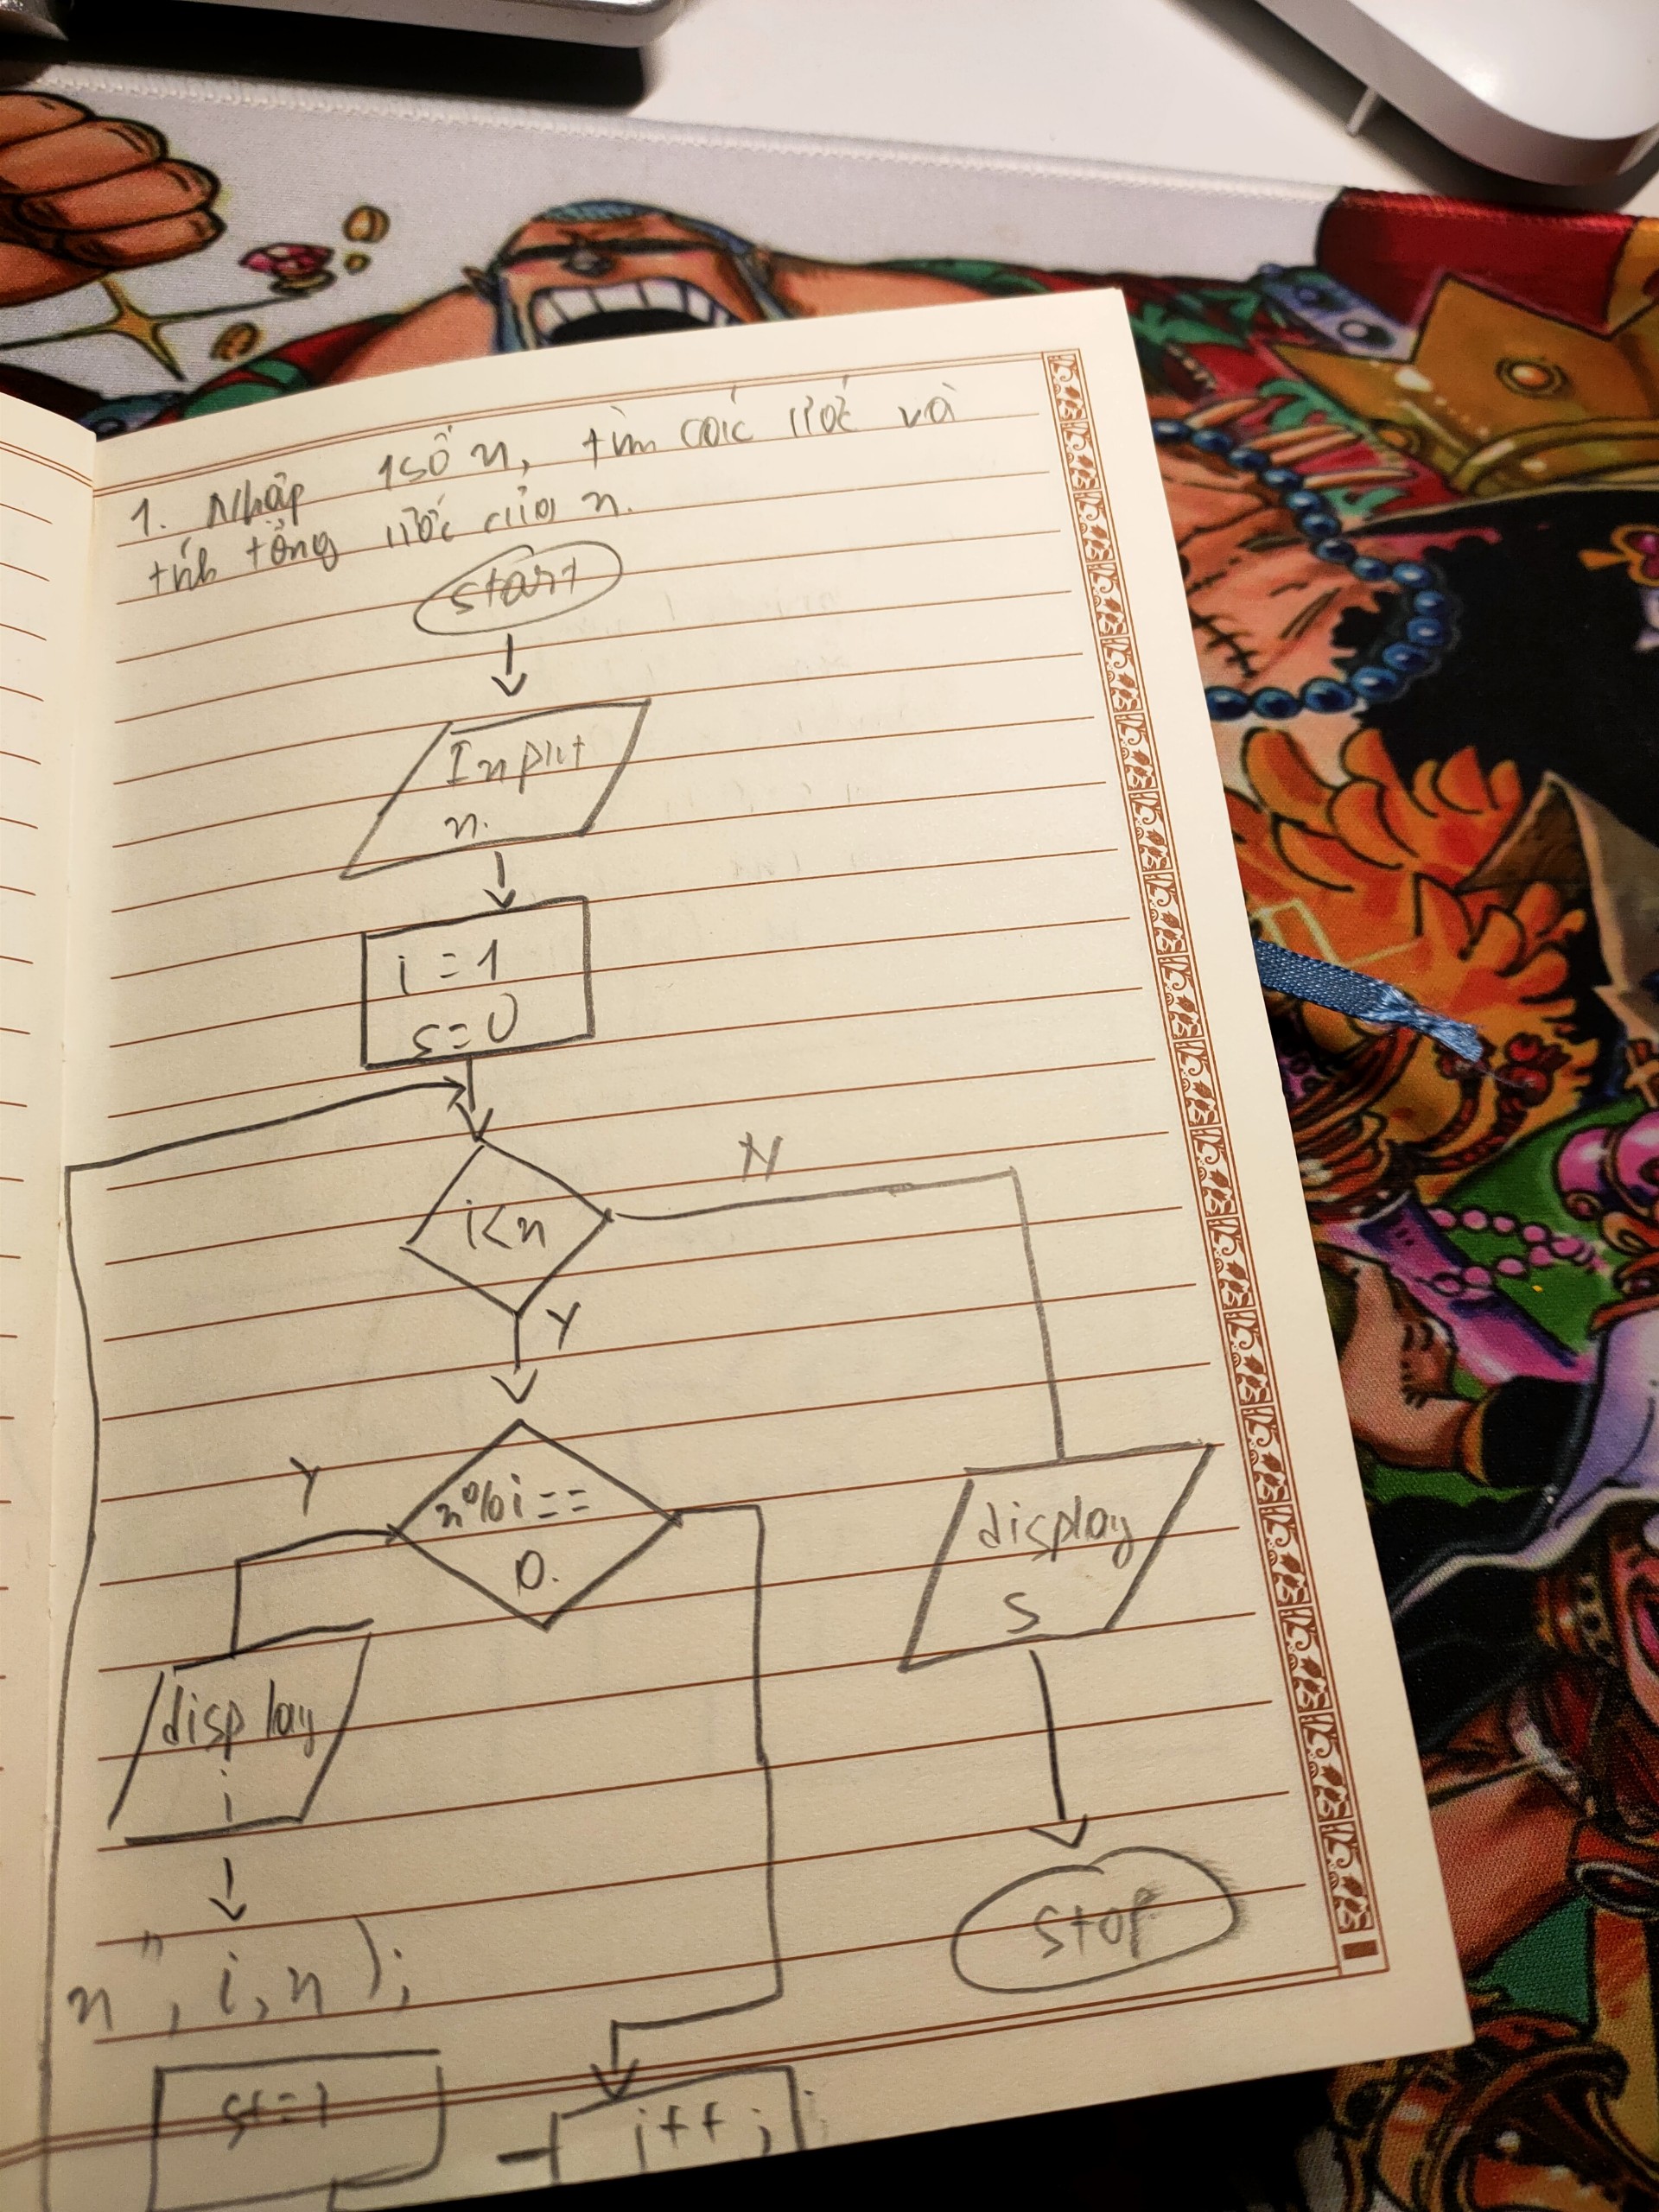 1. Nhập 1 số n, tìm các ước và
tính tổng ước của n.
start
Input
n.
i = 1
s = 0
i < n
N
Y
n % i ==
0.
Y
display
i
display
s
stop
n", i, n );
s+=i
i++;